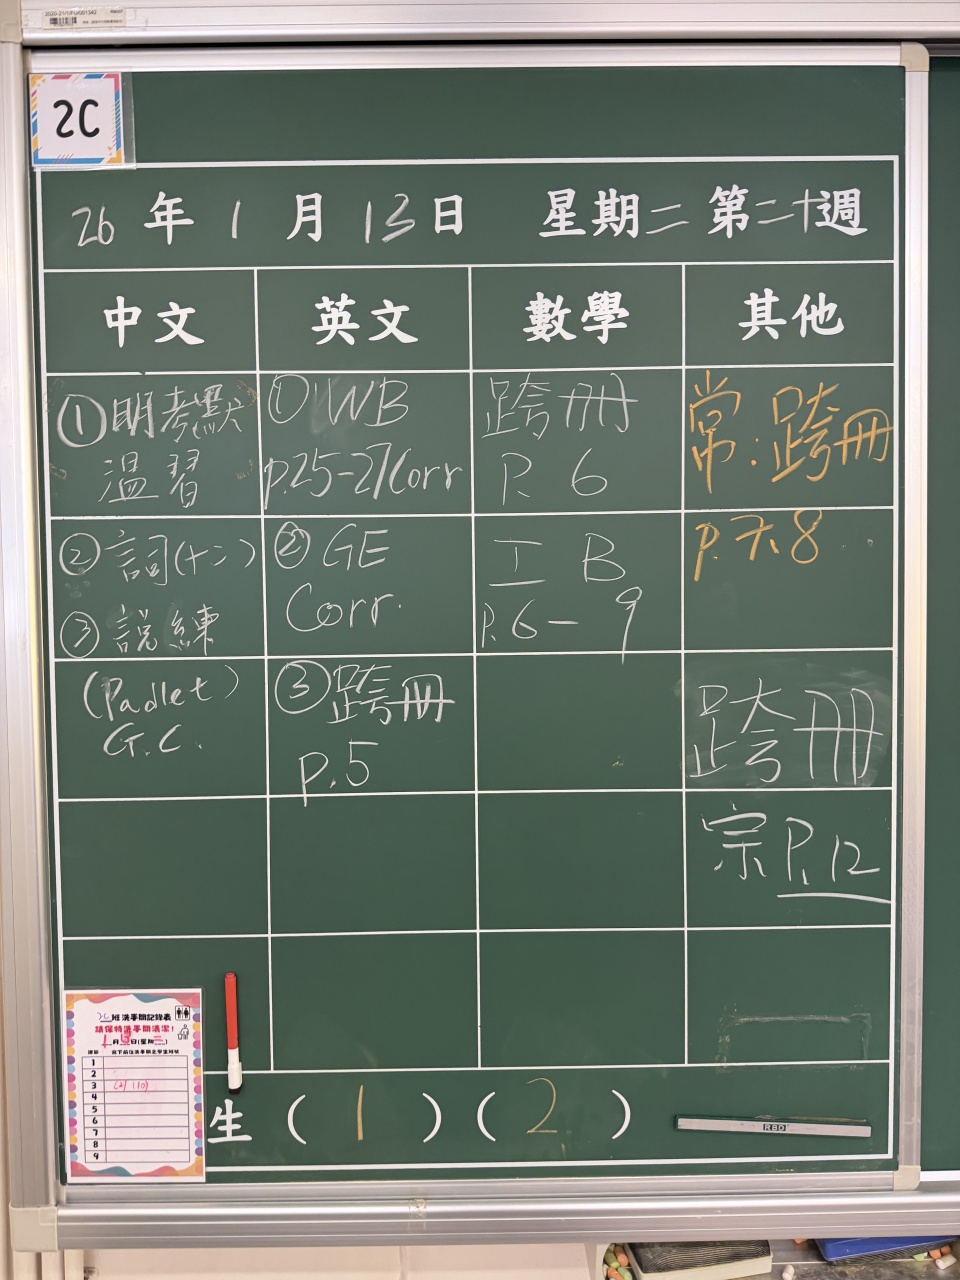 2020-21/UFG/001342
2C
26 年 1 月 13 日 星期二 第二十週
中文 英文 數學 其他
① 明考默
温習
② 詞(十二)
③ 說練
(Padlet)
G.C.
① WB
p.25-27 Corr
② GE
Corr.
③ 跨冊
p.5
跨冊
P. 6
工 B
P.6-9
常：跨冊
p.7、8
跨冊
宗 P.12
2C 班洗手間記錄表
請保持洗手間清潔!
1月13日(星期二)
課節 寫下前往洗手間之學生班號
1
2
3 (2) (10)
4
5
6
7
8
9
生 ( 1 ) ( 2 )
RBD